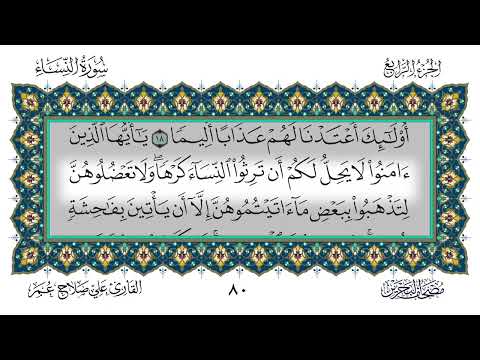 الجزء الرابع
سورة النساء
أُوْلَٰٓئِكَ أَعْتَدْنَا لَهُمْ عَذَابًا أَلِيمًا ١٨ يَٰٓأَيُّهَا الَّذِينَ
ءَامَنُواْ لَا يَحِلُّ لَكُمْ أَن تَرِثُواْ النِّسَآءَ كَرْهًا ۖ وَلَا تَعْضُلُوهُنَّ
لِتَذْهَبُواْ بِبَعْضِ مَآ ءَاتَيْتُمُوهُنَّ إِلَّآ أَن يَأْتِينَ بِفَٰحِشَةٍ
مصحف البحرين
٨٠
القارئ علي صلاح عمر